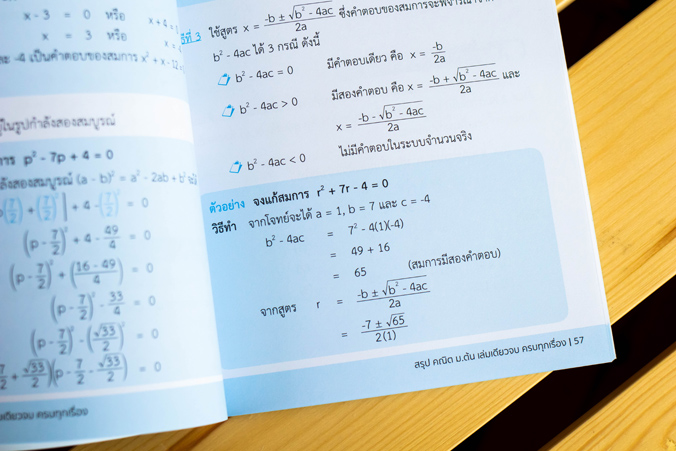 x - 3 = 0 หรือ x + 4 =
x = 3 หรือ x =
-4 เป็นคำตอบของสมการ x² + x - 12
ในรูปกำลังสองสมบูรณ์
p² - 7p + 4 = 0
ลังสองสมบูรณ์ (a - b)² = a² - 2ab + b²
(7/2) + (7/2)² + 4 - (7/2)² = 0
(p - 7/2)² + 4 - 49/4 = 0
(p - 7/2)² + (16 - 49/4) = 0
(p - 7/2)² - 33/4 = 0
(p - 7/2)² - (√33/2)² = 0
7/2 + √33/2)(p - 7/2 - √33/2) = 0
ครบทุกเรื่อง
ธีที่ 3 ใช้สูตร x = -b ± √b² - 4ac/2a ซึ่งคำตอบของสมการจะพิจารณาจาก
b² - 4ac ได้ 3 กรณี ดังนี้
b² - 4ac = 0 มีคำตอบเดียว คือ x = -b/2a
b² - 4ac > 0 มีสองคำตอบ คือ x = -b + √b² - 4ac/2a และ
x = -b - √b² - 4ac/2a
b² - 4ac < 0 ไม่มีคำตอบในระบบจำนวนจริง
ตัวอย่าง จงแก้สมการ r² + 7r - 4 = 0
วิธีทำ จากโจทย์จะได้ a = 1, b = 7 และ c = -4
b² - 4ac = 7² - 4(1)(-4)
= 49 + 16
= 65 (สมการมีสองคำตอบ)
จากสูตร r = -b ± √b² - 4ac/2a
= -7 ± √65/2(1)
สรุป คณิต ม.ต้น เล่มเดียวจบ ครบทุกเรื่อง | 57